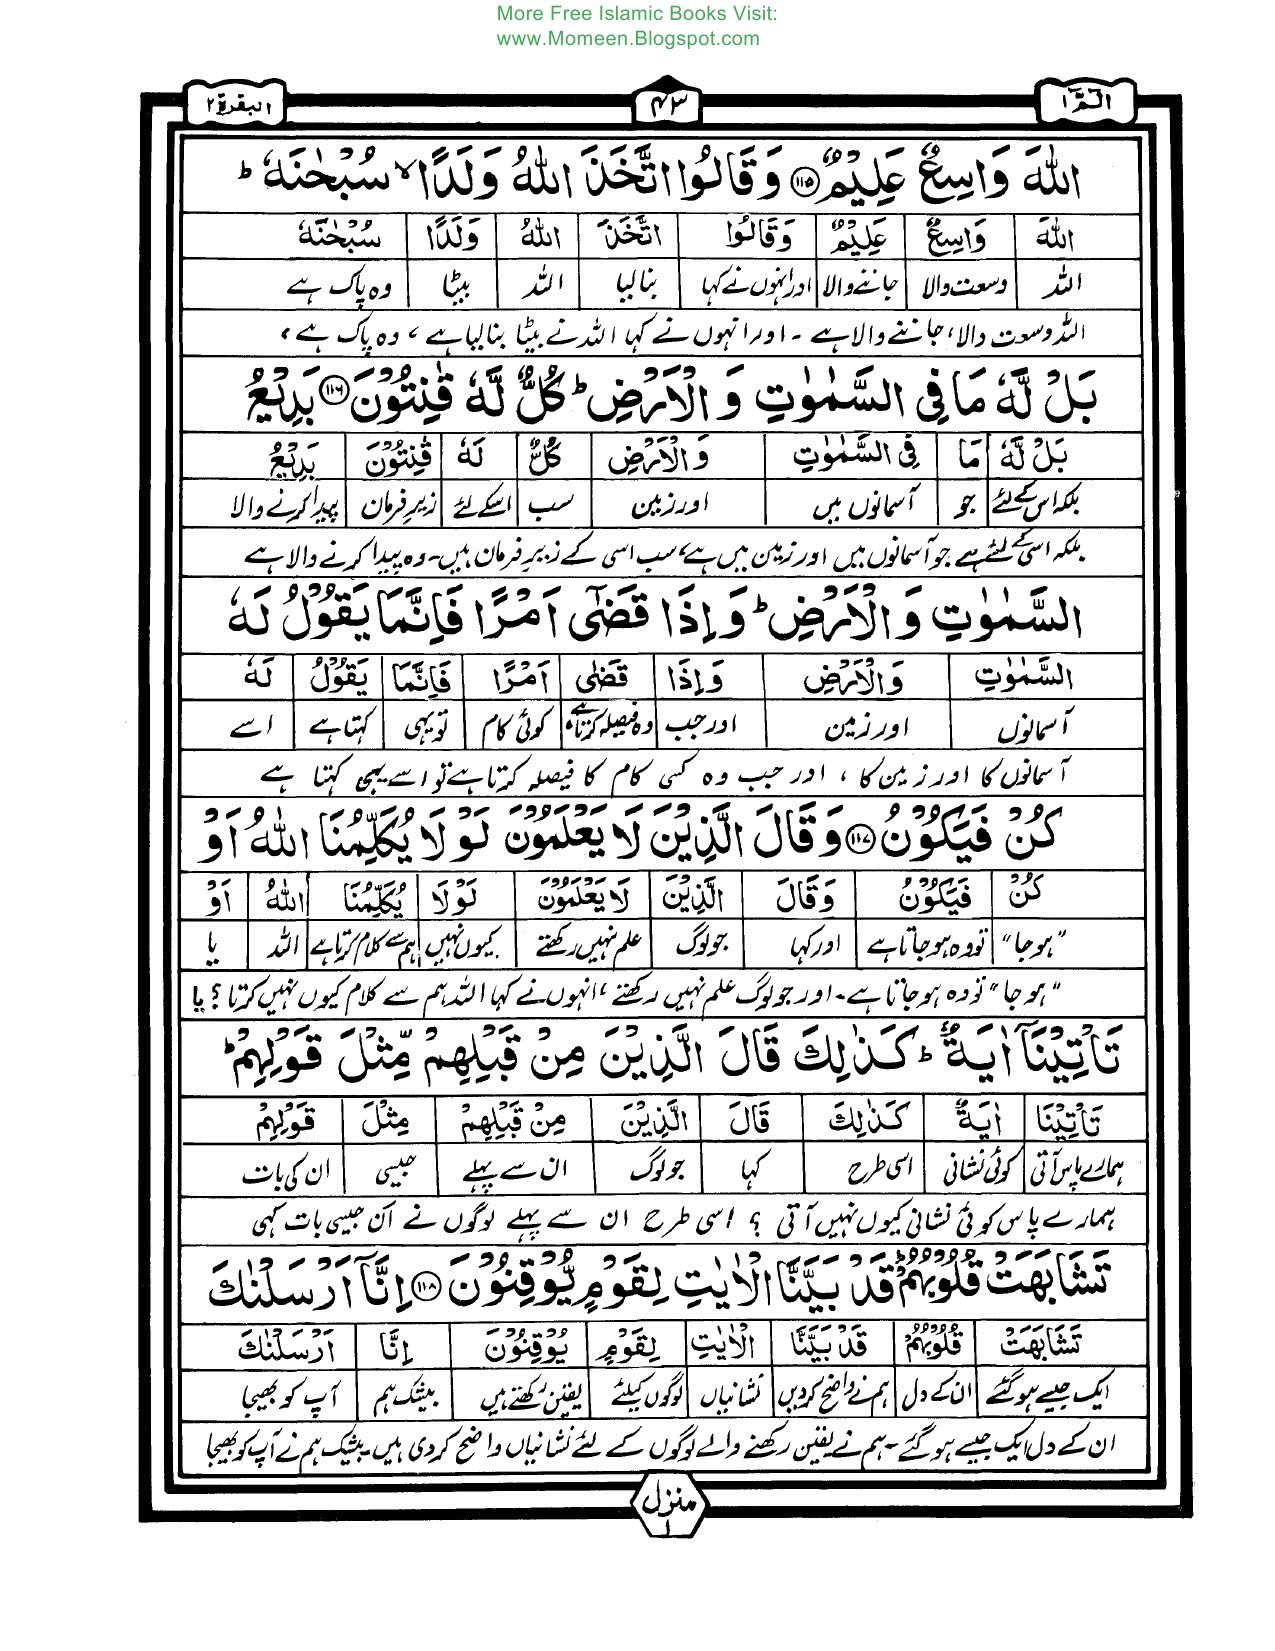 More Free Islamic Books Visit:
www.Momeen.Blogspot.com
الٓمّٓ ١ ۴۳ البقرة ٢
اللّٰهَ وَاسِعٌ عَلِيْمٌ ﴿١١٥﴾ وَقَالُوا اتَّخَذَ اللّٰهُ وَلَدًا ۙ سُبْحٰنَهٗ ؕ
اللّٰهَ وَاسِعٌ عَلِيْمٌ وَقَالُوا اتَّخَذَ اللّٰهُ وَلَدًا سُبْحٰنَهٗ
اللہ وسعت والا جاننے والا اور انہوں نے کہا بنا لیا اللہ بیٹا وہ پاک ہے
اللہ وسعت والا، جاننے والا ہے ۔ اور انہوں نے کہا اللہ نے بیٹا بنا لیا ہے، وہ پاک ہے،
بَلْ لَّهٗ مَا فِى السَّمٰوٰتِ وَ الْاَرْضِ ؕ كُلٌّ لَّهٗ قٰنِتُوْنَ ﴿١١٦﴾ بَدِيْعُ
بَلْ لَّهٗ مَا فِى السَّمٰوٰتِ وَالْاَرْضِ كُلٌّ لَهٗ قٰنِتُوْنَ بَدِيْعُ
بلکہ اس کے لئے جو آسمانوں میں اور زمین سب اسکے لئے زیر فرمان پیدا کرنے والا
بلکہ اسی کے لئے ہے جو آسمانوں میں اور زمین میں ہے، سب اسی کے زیر فرمان ہیں۔ وہ پیدا کرنے والا ہے
السَّمٰوٰتِ وَالْاَرْضِ ؕ وَاِذَا قَضٰٓى اَمْرًا فَاِنَّمَا يَقُوْلُ لَهٗ
السَّمٰوٰتِ وَالْاَرْضِ وَاِذَا قَضٰى اَمْرًا فَاِنَّمَا يَقُوْلُ لَهٗ
آسمانوں اور زمین اور جب وہ فیصلہ کرتا ہے کوئی کام تو یہی کہتا ہے اسے
آسمانوں کا اور زمین کا، اور جب وہ کسی کام کا فیصلہ کرتا ہے تو اسے یہی کہتا ہے
كُنْ فَيَكُوْنُ ﴿١١٧﴾ وَقَالَ الَّذِيْنَ لَا يَعْلَمُوْنَ لَوْلَا يُكَلِّمُنَا اللّٰهُ اَوْ
كُنْ فَيَكُوْنُ وَقَالَ الَّذِيْنَ لَا يَعْلَمُوْنَ لَوْلَا يُكَلِّمُنَا اللّٰهُ اَوْ
"ہو جا" تو وہ ہو جاتا ہے اور کہا جو لوگ علم نہیں رکھتے کیوں نہیں ہم سے کلام کرتا ہے اللہ یا
"ہو جا" تو وہ ہو جاتا ہے۔ اور جو لوگ علم نہیں رکھتے، انہوں نے کہا اللہ ہم سے کلام کیوں نہیں کرتا؟ یا
تَاْتِيْنَاۤ اٰيَةٌ ؕ كَذٰلِكَ قَالَ الَّذِيْنَ مِنْ قَبْلِهِمْ مِّثْلَ قَوْلِهِمْ ؕ
تَاْتِيْنَا اٰيَةٌ كَذٰلِكَ قَالَ الَّذِيْنَ مِنْ قَبْلِهِمْ مِثْلَ قَوْلِهِمْ
ہمارے پاس آتی کوئی نشانی اسی طرح کہا جو لوگ ان سے پہلے جیسی ان کی بات
ہمارے پاس کوئی نشانی کیوں نہیں آتی؟ اسی طرح ان سے پہلے لوگوں نے ان جیسی بات کہی
تَشَابَهَتْ قُلُوْبُهُمْ ؕ قَدْ بَيَّنَّا الْاٰيٰتِ لِقَوْمٍ يُّوْقِنُوْنَ ﴿١١٨﴾ اِنَّاۤ اَرْسَلْنٰكَ
تَشَابَهَتْ قُلُوْبُهُمْ قَدْ بَيَّنَّا الْاٰيٰتِ لِقَوْمٍ يُوْقِنُوْنَ اِنَّا اَرْسَلْنٰكَ
ایک جیسے ہو گئے ان کے دل ہم نے واضح کر دیں نشانیاں لوگوں کیلئے یقین رکھتے ہیں بیشک ہم آپ کو بھیجا
ان کے دل ایک جیسے ہو گئے۔ ہم نے یقین رکھنے والے لوگوں کے لئے نشانیاں واضح کر دی ہیں۔ بیشک ہم نے آپ کو بھیجا
منزل
١